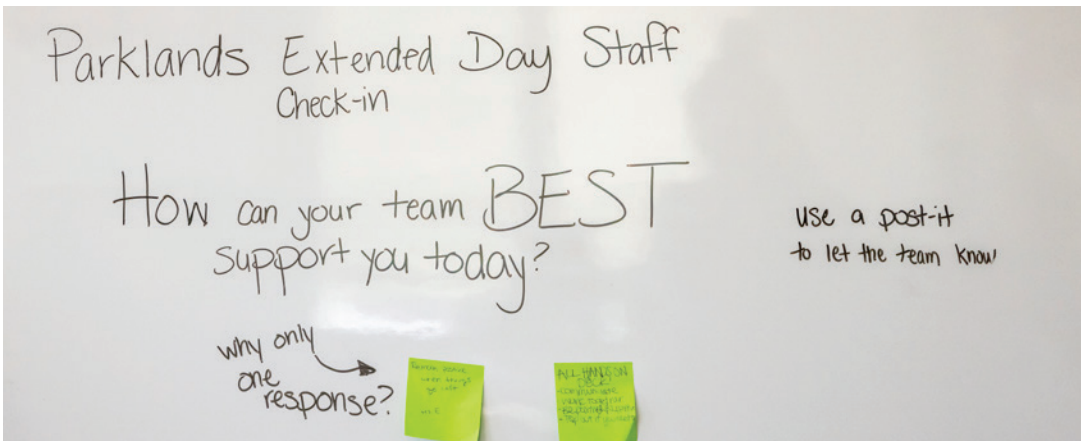 Parklands Extended Day Staff
Check-in
How can your team BEST
support you today?
use a post-it
to let the team know
why only
one
response?
when things
ALL HANDS ON
DECK!